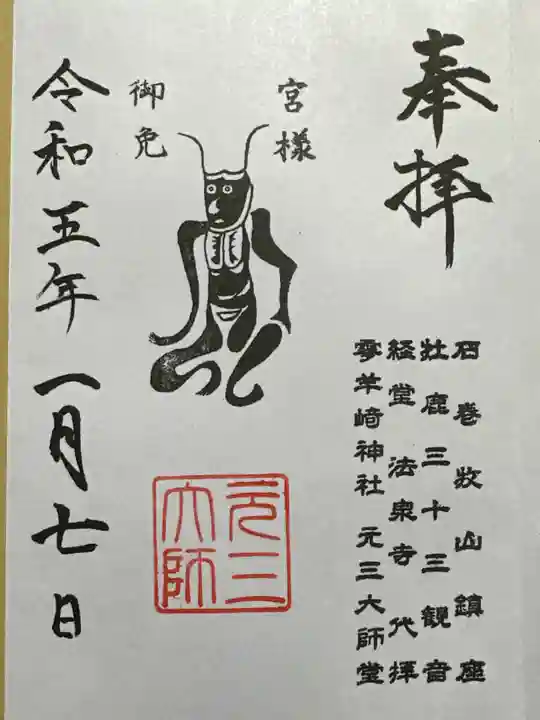 奉拝
石巻牧山鎮座
牡鹿三十三観音
経堂法泉寺代拝
零羊崎神社 元三大師堂
宮様
御免
元三
大師
令和五年一月七日